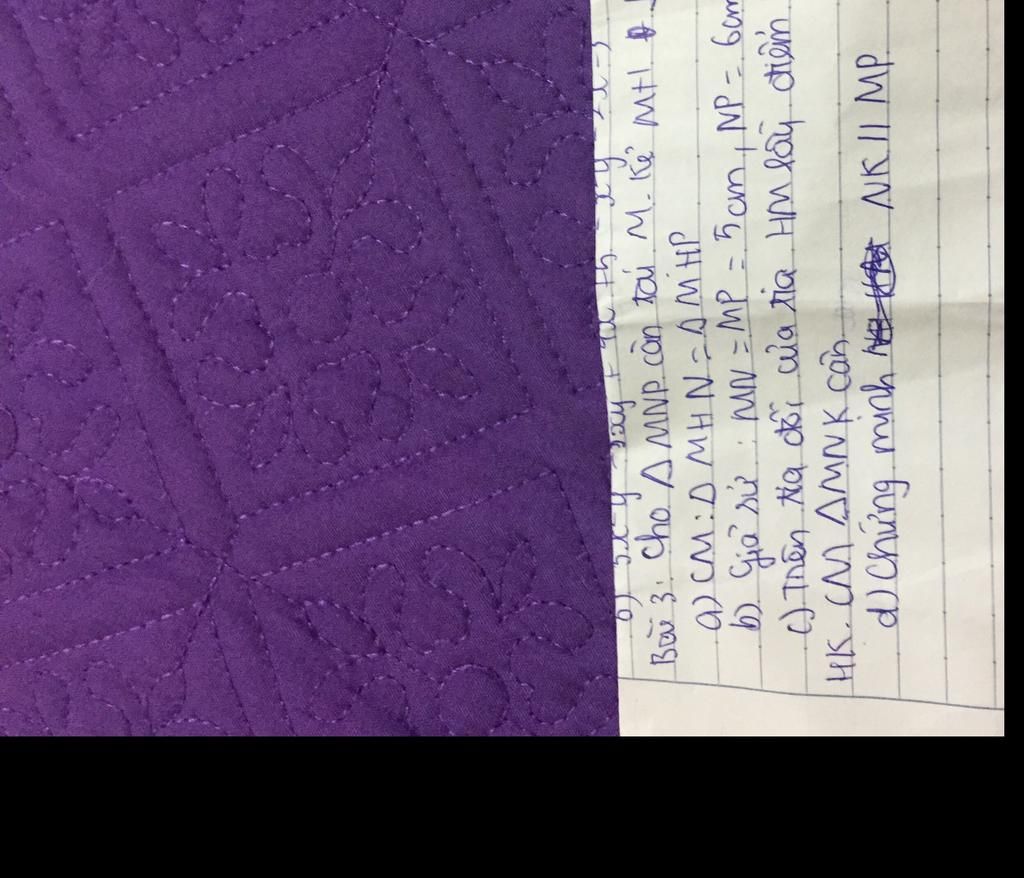 b) 5x - y
Bài 3: Cho Δ MNP cân tại M. Kẻ MH
a) CM: Δ MHN = Δ MHP
b) Giả sử: MN = MP = 5cm, NP = 6cm
c) Trên tia đối của tia HM lấy điểm
HK. CM ΔMNK cân
d) Chứng minh NK || MP